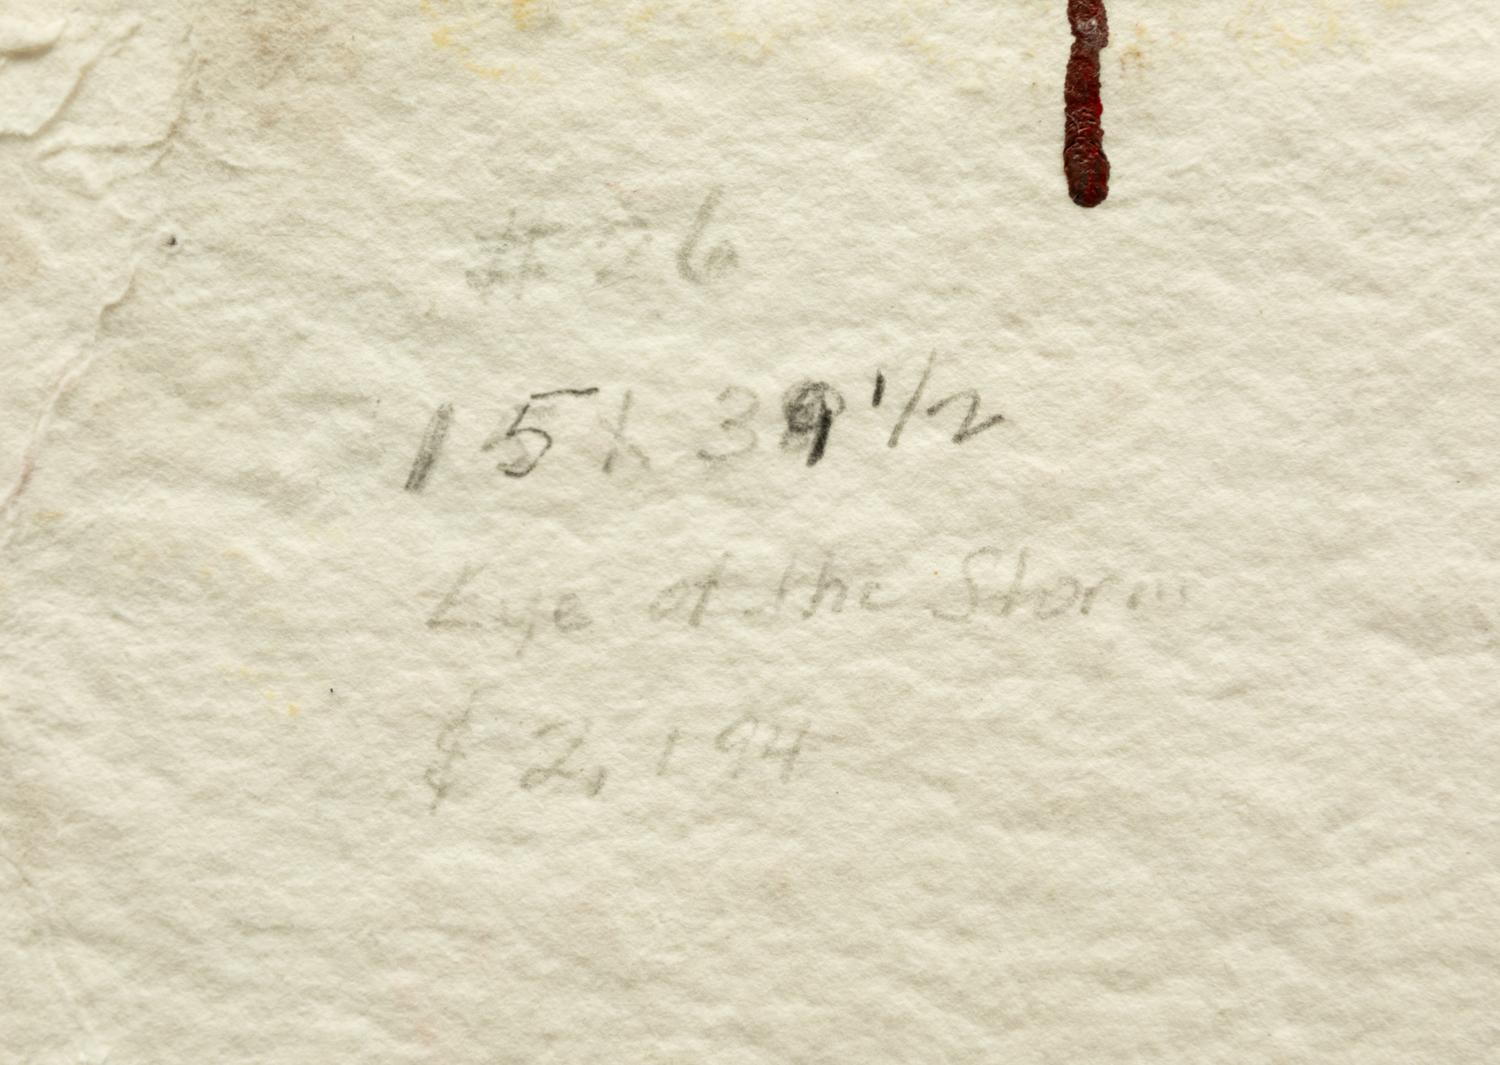 #26
15 x 39 1/2
Eye of the Storm
$2,194